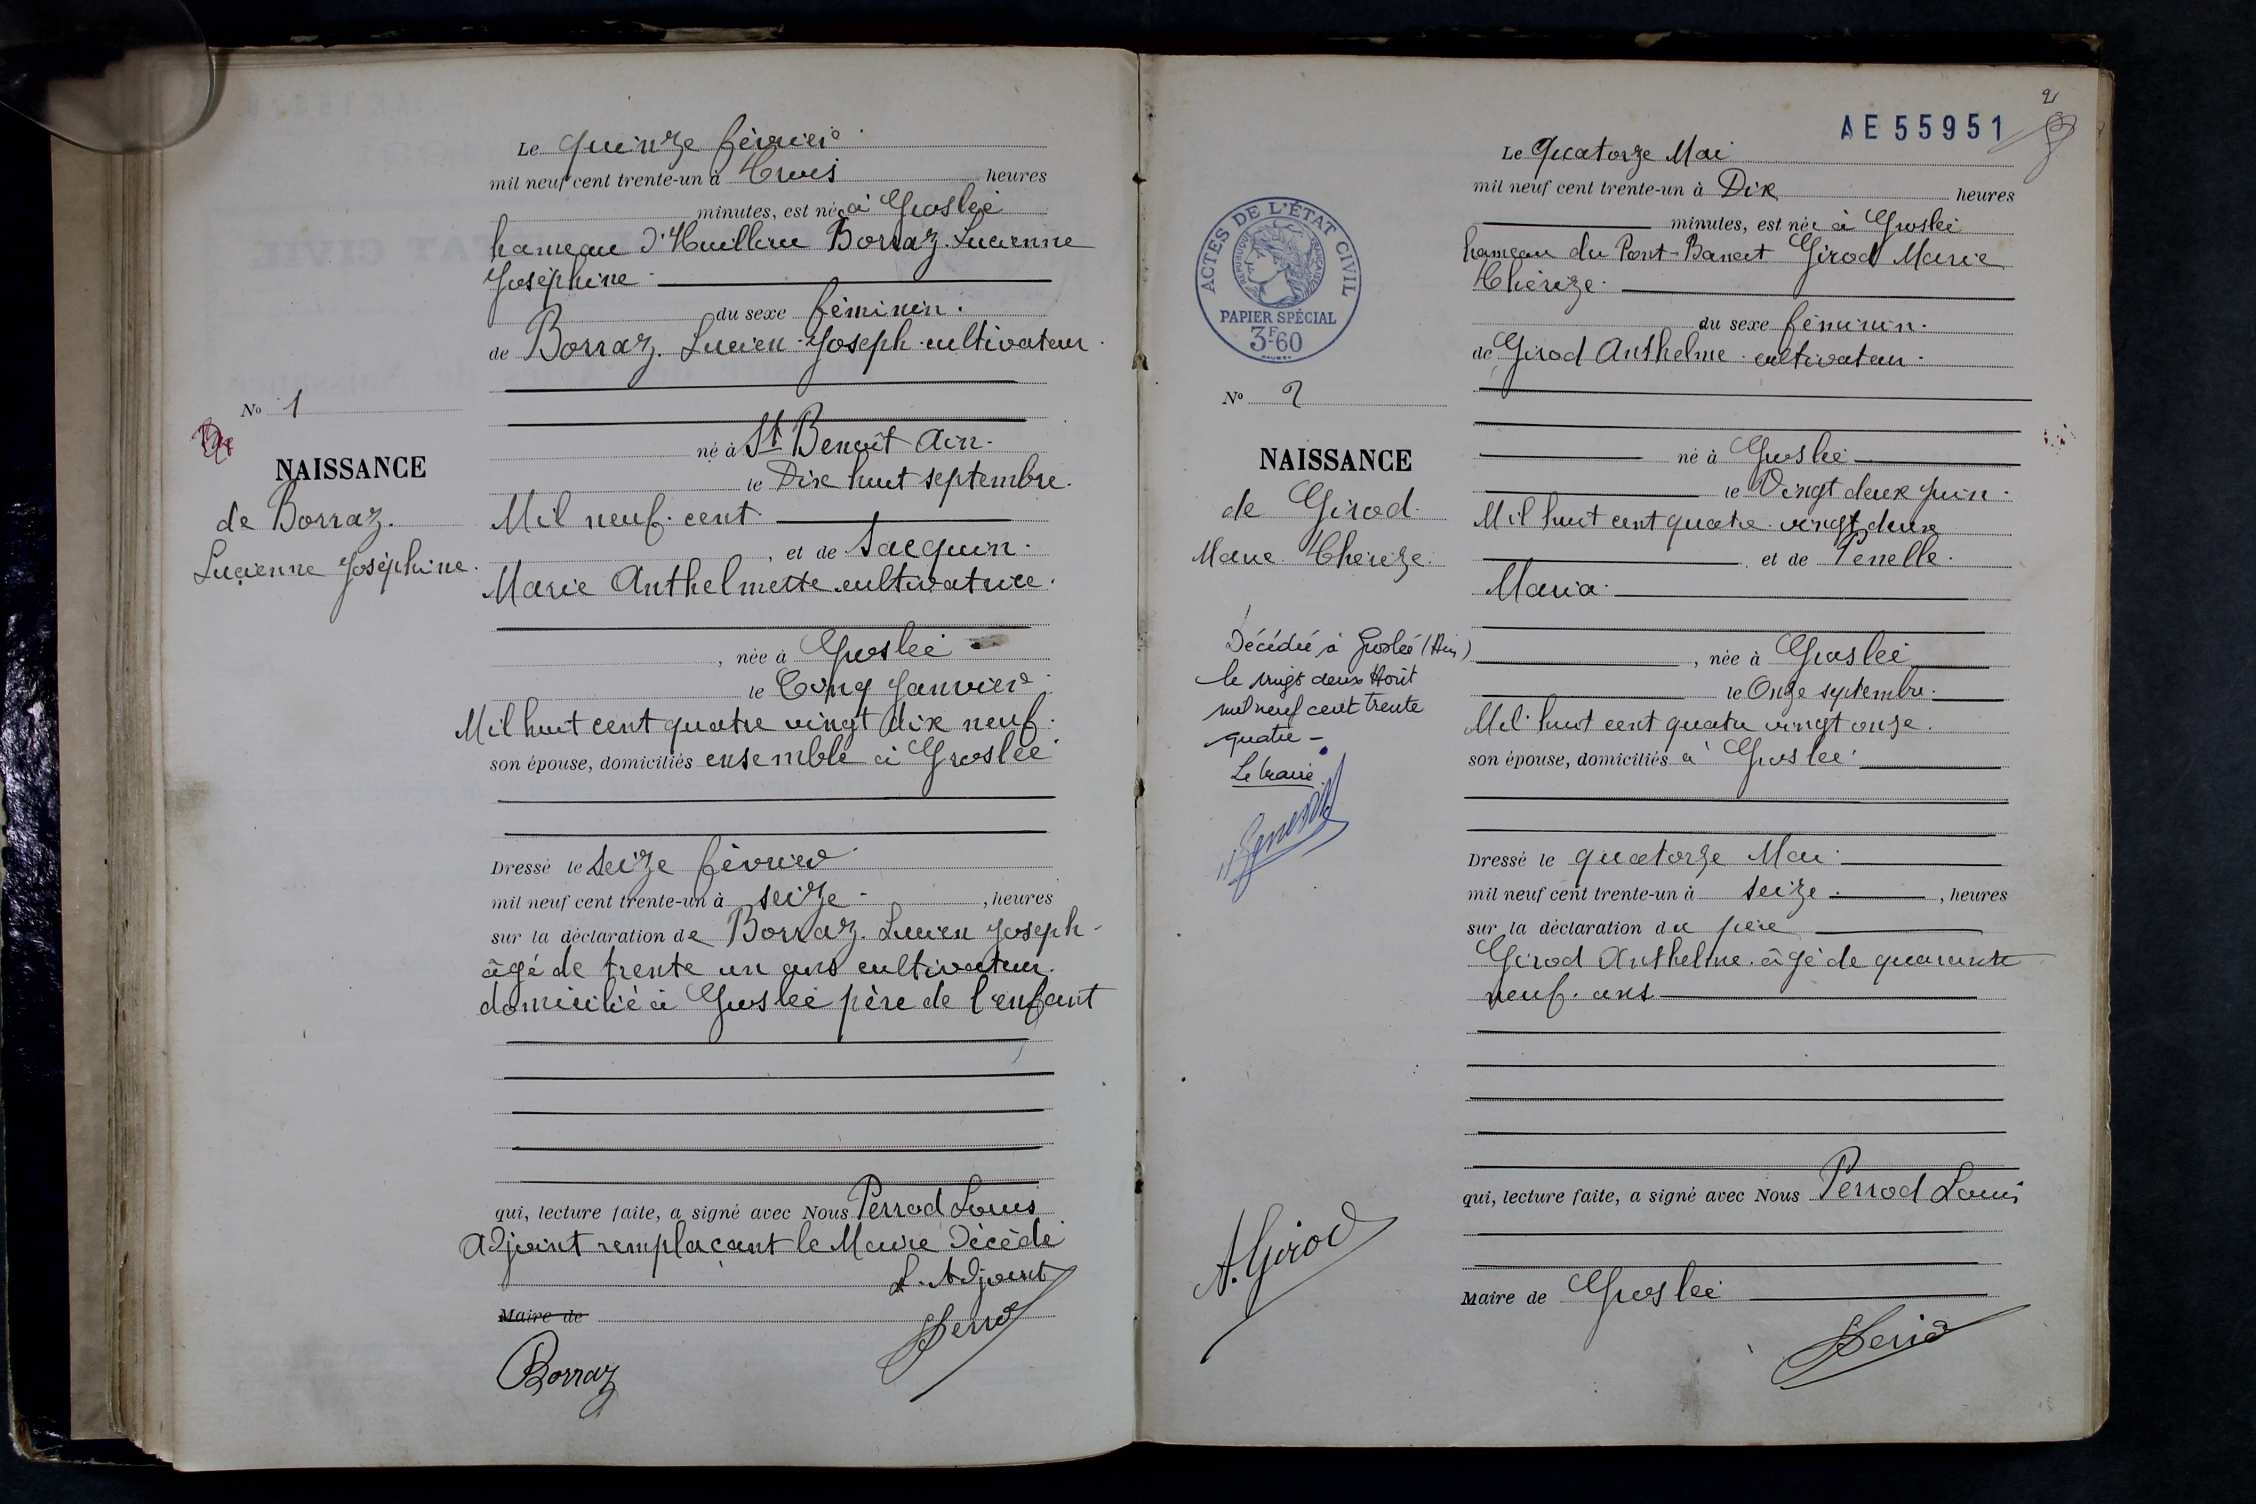 Le quinze février
mil neuf cent trente-un à Trois heures
minutes, est née à Groslée
hameau d'Huilieu Borraz Lucienne
Joséphine
du sexe féminin.
de Borraz Lucien Joseph cultivateur
né à St Benoît Ain.
le Dix huit septembre.
Mil neuf cent
, et de Jacquin.
Marie Anthelmette cultivatrice.
, née à Groslée
le Cinq Janvier
Mil huit cent quatre vingt dix neuf.
son épouse, domiciliés ensemble à Groslée
Dressé le seize février
mil neuf cent trente-un à seize , heures
sur la déclaration de Borraz Lucien Joseph
âgé de trente un ans cultivateur.
domicilié à Groslée père de l'enfant
qui, lecture faite, a signé avec Nous Perrod Louis
Adjoint remplaçant le Maire Décédé
L. Adjoint
Maire de
Borraz
Perrod
No 1
NAISSANCE
de Borraz.
Lucienne Joséphine.
2
AE 55951
ACTES DE L'ÉTAT CIVIL
RÉPUBLIQUE FRANÇAISE
PAPIER SPÉCIAL
3F60
No 2
NAISSANCE
de Girod.
Marie Thérèze.
Décédée à Groslée (Ain)
le vingt deux Août
mil neuf cent trente
quatre -
Le Maire
A. Girod
Le Quatorze Mai
mil neuf cent trente-un à Dix heures
minutes, est née à Groslée
hameau du Port-Bancet Girod Marie
Thérèze.
du sexe féminin.
de Girod Anthelme cultivateur.
né à Groslée
le Vingt deux Juin.
Mil huit cent quatre vingt deux
et de Penelle.
Maria.
, née à Groslée
le Onze septembre.
Mil huit cent quatre vingt onze.
son épouse, domiciliés à Groslée
Dressé le quatorze Mai
mil neuf cent trente-un à seize , heures
sur la déclaration du père
Girod Anthelme âgé de quarante
neuf ans
qui, lecture faite, a signé avec Nous Perrod Louis
Maire de Groslée
Perrod